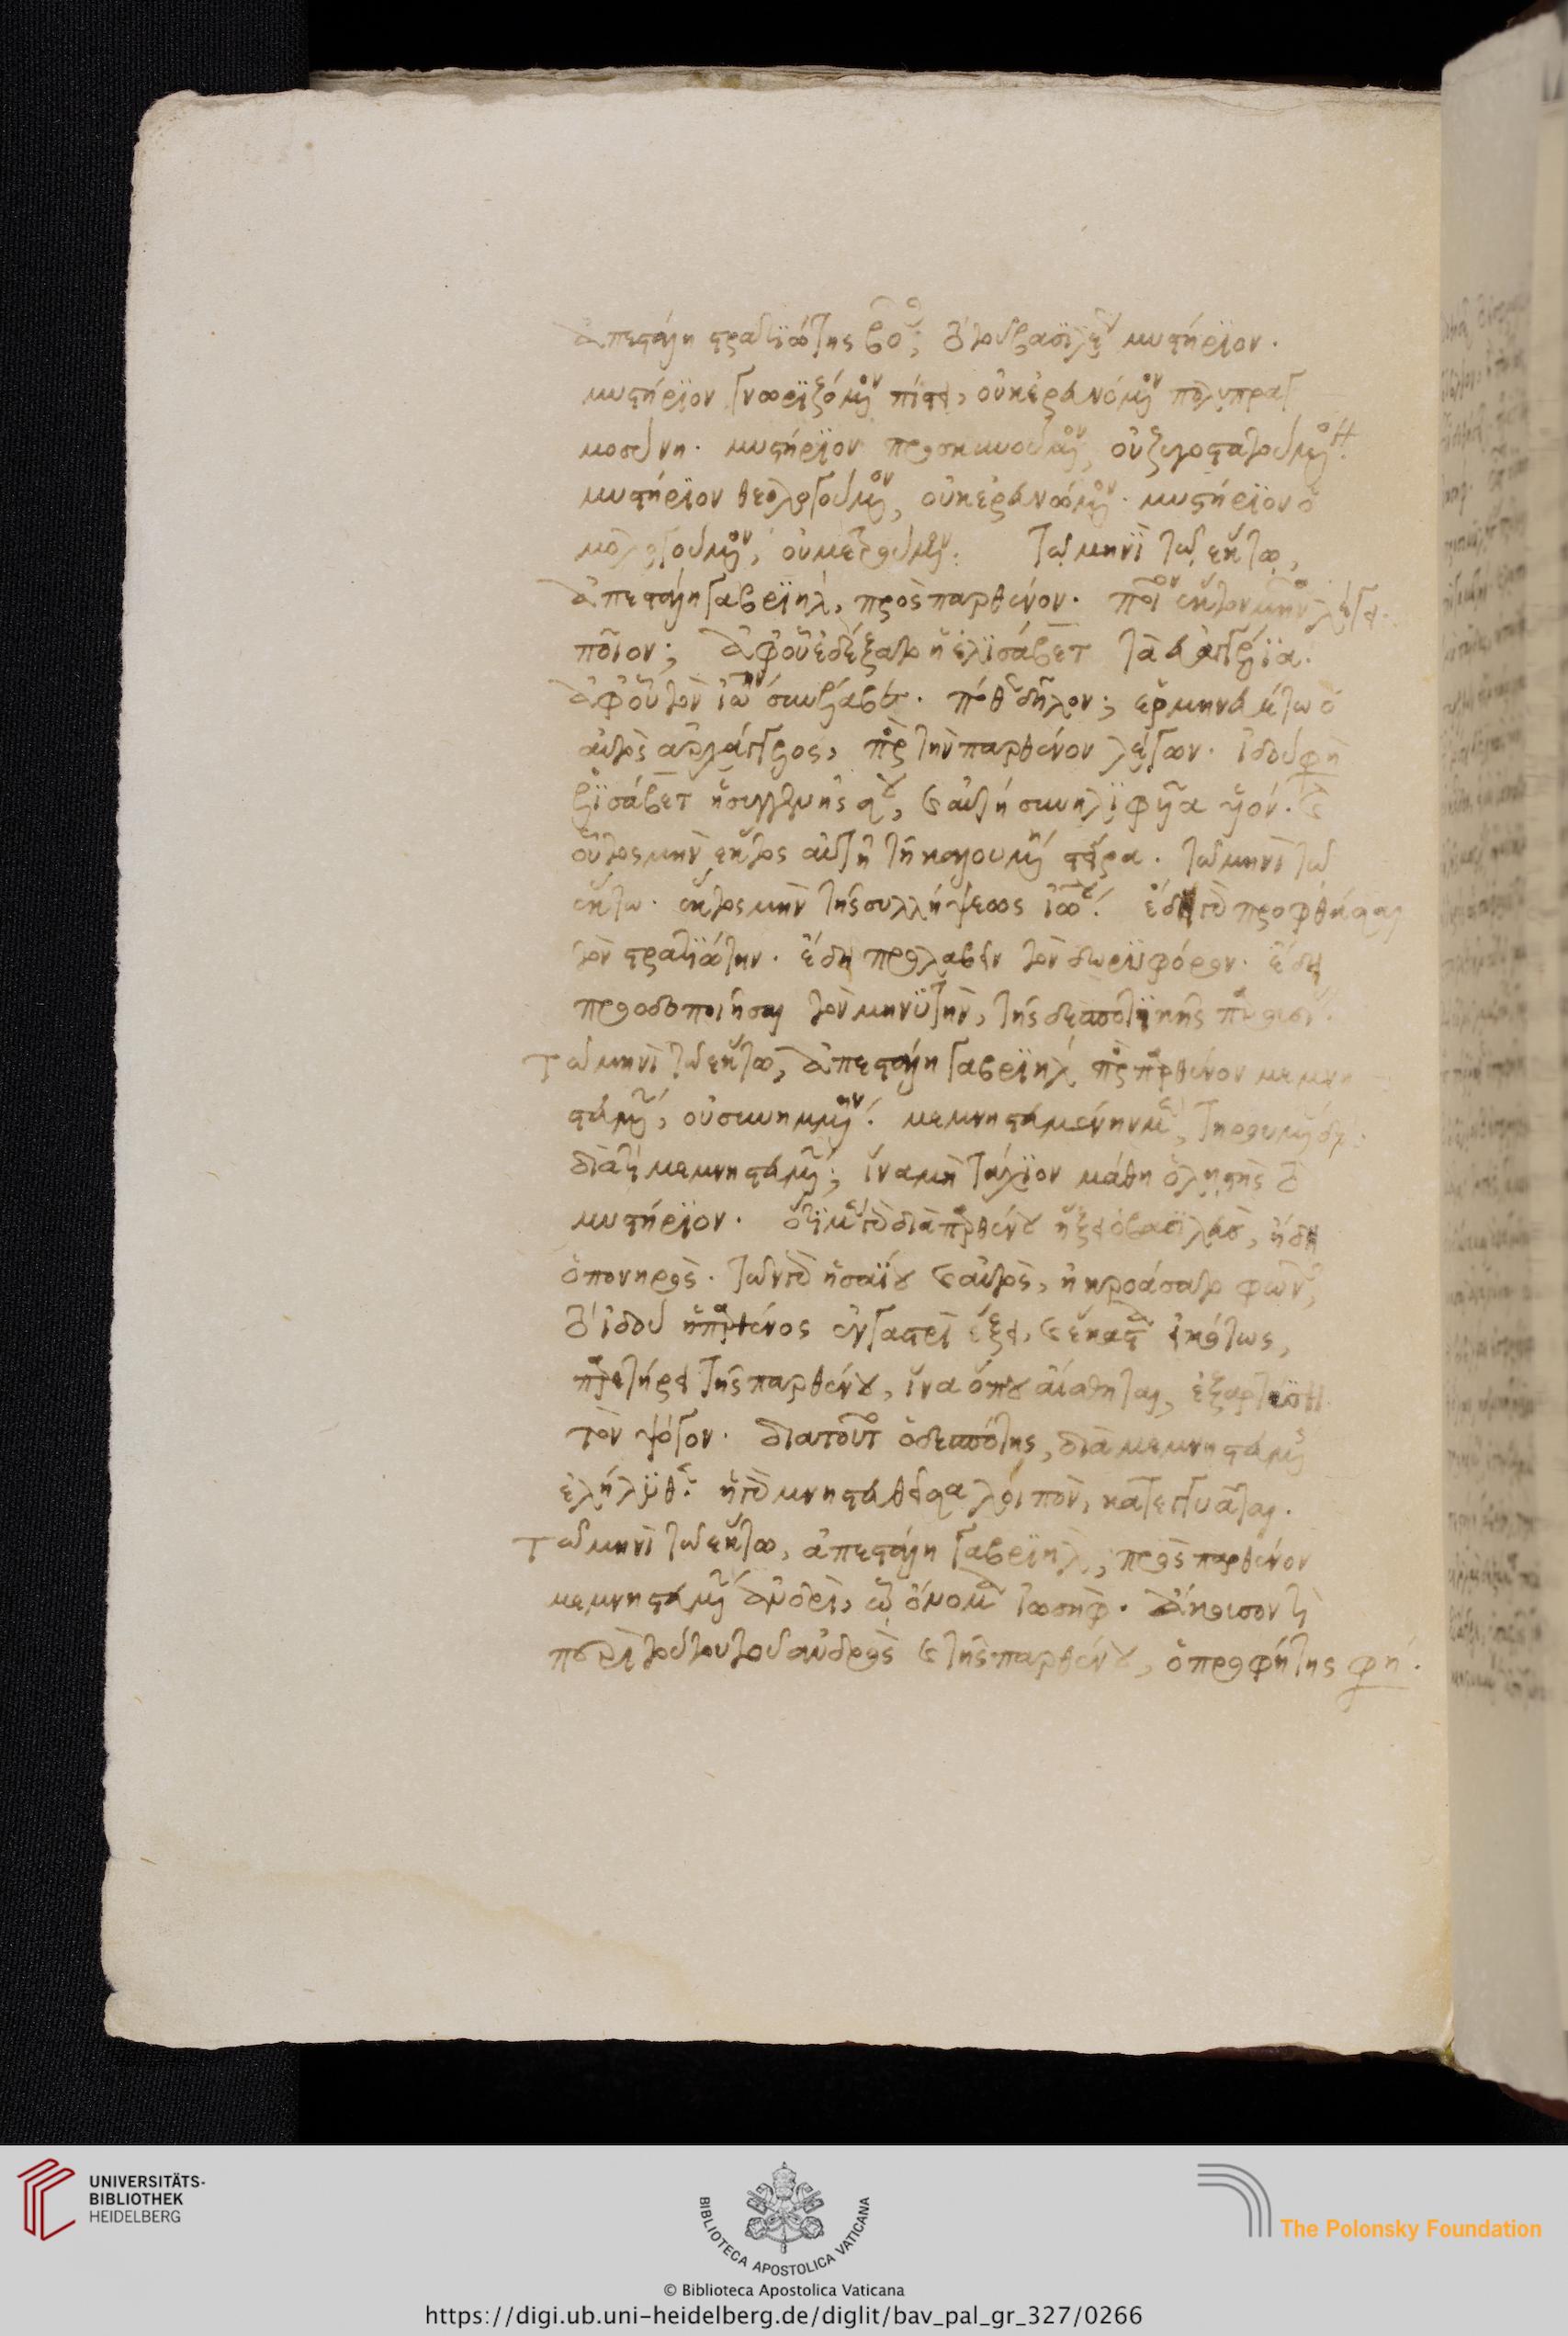 ἀπεστάλη στρατϊώτης βοῶν; τὸ τοῦ βασϊλέως μυστήρϊον.
μυστήρϊον γνωρϊζόμενον πίστει, οὐκ ἐρευνόμενον πολυπραγ
μοσύνη. μυστήρϊον προσκυνούμενον, οὐ ζυγοστατούμενον.
μυστήρϊον θεολογούμενον, οὐκ ἐρευνώμενον. μυστήρϊον ὁ
μολογούμενον, οὐ μετρούμενον. τῶ μηνῒ τῶ ἕκτω,
ἀπεστάλη γαβρϊὴλ, πρὸς παρθένον. ποῖον ἕκτον μῆνα λέγει.
ποῖον; ἀφ' οὗ ἐδέξατο ἡ ἐλϊσάβετ τὰ εὐαγγέλϊα.
ἀφ' οὗ τὸν ἰωάννην συνέλαβεν. πόθεν δῆλον; ἑρμηνευέτω ὁ
αὐτὸς ἀρχάγγελος, πρὸς τὴν παρθένον λέγων. ἰδοὺ φη
ἐλϊσάβετ ἡ συγγενής σου, καὶ αὐτὴ συνηλϊφυῖα υἱόν. καὶ
οὗτος μὴν ἕκτος αὐτῆ τῆ καλουμένη στείρα. τῶ μηνὶ τῶ
ἕκτω. ἕκτος μὴν τῆς συλλήψεως ἰωάννου. ἔδει γὰρ προφθάσαι
τὸν στρατϊώτην. ἔδει προλαβεῖν τὸν δωρυφόρον. ἔδει
προοδοποιῆσαι τὸν μηνϋτὴν, τῆς δεσποτϊκῆς παρουσίας.
Τῶ μηνὶ τῶ ἕκτω, ἀπεστάλη γαβρϊὴλ πρὸς παρθένον μεμνη
στευμένην, οὐ συνημμένην. μεμνηστευμένην μὲν, τηρουμένην δέ.
διατί μεμνηστευμένην; ἵνα μὴ τάχϊον μάθη ὁ ληστὴς τὸ
μυστήρϊον. ὅτϊ μὲν γὰρ διὰ παρθένου ἥξει ὁ βασϊλεὺς, ἤδει
ὁ πονηρὸς. τῶν γὰρ ἡσαΐου καὶ αὐτὸς, ἠκροάσατο φωνῶν,
τὸ ἰδοὺ ἡ παρθένος ἐν γαστρὶ ἕξει, καὶ ἕκαστα εἰκότως,
παρετήρει τῆς παρθένου, ἵνα ὅπου αἴσθηται, ἐξαρτύση
τὸν ψόγον. διατοῦτο ὁ δεσπότης, διὰ μεμνηστευμένης
ἐλήλϋθεν. ἡ γὰρ μνηστευθεῖσα λοιπὸν, κατεγγυᾶται.
Τῶ μηνὶ τῶ ἕκτω, ἀπεστάλη γαβρϊὴλ, πρὸς παρθένον
μεμνηστευμένην ἀνδρὶ, ὧ ὄνομα ἰωσήφ. ἄκουσον τί
περὶ τούτου τοῦ ἀνδρὸς καὶ τῆς παρθένου, ὁ προφήτης φη.
UNIVERSITÄTS-
BIBLIOTHEK
HEIDELBERG
BIBLIOTECA APOSTOLICA VATICANA
The Polonsky Foundation
© Biblioteca Apostolica Vaticana
https://digi.ub.uni-heidelberg.de/diglit/bav_pal_gr_327/0266